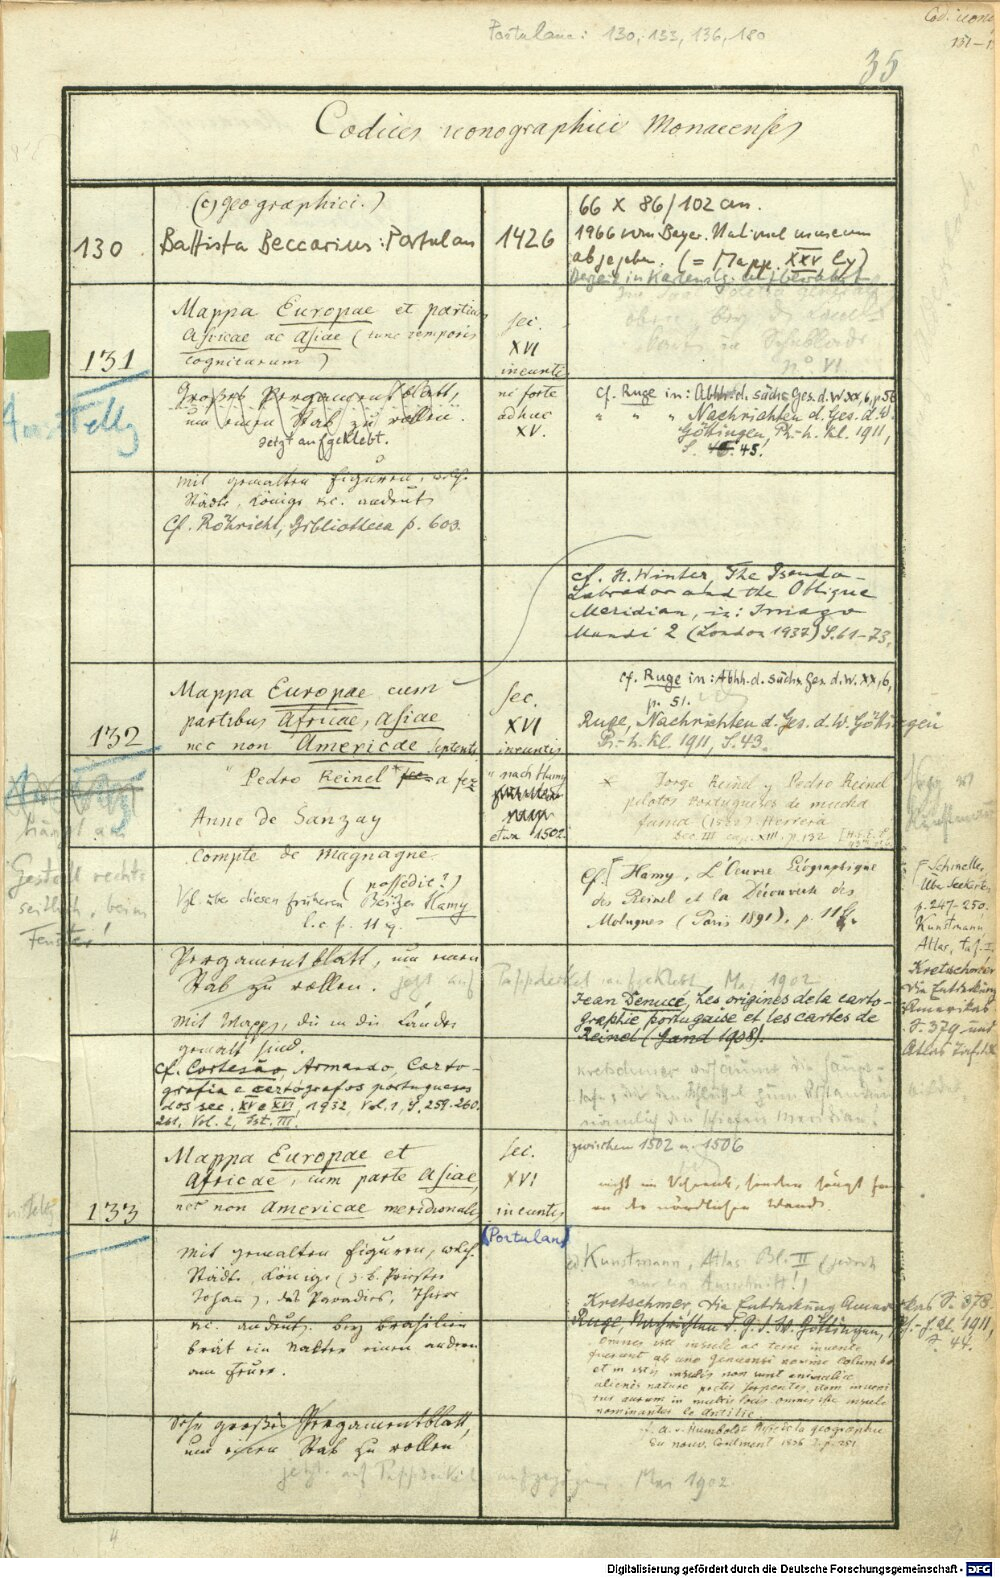 Portulane: 130, 133, 136, 180
Cod. icon.
35
Codices iconographici Monacenses
(c) geographici.)
130
Battista Beccarius: Portulan
1426
66 x 86/102 cm.
1966 vom Bayer. Nationalmuseum
abgegeben. (= Mapp. XXV
131
Mappa Europae et partium
Africae ac Asiae (tunc temporis
cognitarum)
sec.
XVI
ineuntis
ni forte
adhuc
XV.
Großes Pergamentblatt,
um einen Stab zu rollen.
Jetzt aufgeklebt.
cf. Ruge in: Abhh. d. sächs. Ges. d. W. XX, 6, p. 56
" " " Nachrichten d. Ges. d. W.
Göttingen, Ph.-h. Kl. 1911,
S. 45.
mit gemalten Figuren, welche
Städte, Könige etc. andeuten
Cf. Röhricht, Bibliotheca p. 603.
cf. H. Winter, The Pseudo-
Labrador and the Oblique
Meridian, in: Imago
Mundi 2 (London 1937) S. 61-73.
132
Mappa Europae cum
partibus Africae, Asiae
nec non Americae septentr.
sec.
XVI
ineuntis
cf. Ruge in: Abhh. d. sächs. Ges. d. W. XX, 6,
p. 51.
Ruge, Nachrichten d. Ges. d. W. Göttingen
Ph.-h. Kl. 1911, S. 43.
" Pedro Reinel a fez
Anne de Sanzay
" nach Hamy
etwa 1502.
* Jorge Reinel y Pedro Reinel
pilotos Portugueses de mucha
fama Herrera
Dec. III cap. XIII, p. 132
Compte de Magnagne
(possedit?)
Vgl. über diesen früheren Besitzer Hamy
l. c. p. 11 q.
Cf. Hamy, L'Oeuvre Géographique
des Reinel et la Découverte des
Moluques (Paris 1891), p. 11
hängt an
Gestell rechts
seitlich, beim
Fenster!
Schmeller,
Über Seekarten
p. 247-250.
Kunstmann,
Atlas, taf. I.
Kretschmer
Die Entdeckung
Amerikas
S. 379 und
Atlas Tafel
Pergamentblatt, um einen
Stab zu rollen. jetzt auf Pappdeckel aufgeklebt. Mai 1902
Mit Wappen, die in die Länder
gemalt sind.
Jean Denucé, Les origines de la carto-
graphie portugaise et les cartes de
Reinel (Gand 1908).
cf. Cortesão, Armando, Carto-
grafia e cartógrafos portugueses
dos sec. XV e XVI, 1932, Vol. 1, S. 259. 260.
261, Vol. 2, Est. III.
133
Mappa Europae et
Africae, cum parte Asiae,
nec non Americae meridionalis
sec.
XVI
ineuntis
(Portulan)
zwischen 1502 u. 1506
nicht im Schrank, sondern hängt
an der nördlichen Wand
mit gemalten Figuren, welche
Städte, Könige (z.B. Priester
Johann), das Paradies, Thiere
etc. andeuten. Bey Brasilien
brät ein Nackter einen andern
am Feuer.
Kunstmann, Atlas Bl. II (jedoch
nur im Ausschnitt!)
Kretschmer, Die Entdeckung Amerikas S. 373.
Ruge, Nachrichten d. G. d. W. Göttingen, Ph.-h. Kl. 1911,
S. 44.
Omnes iste insule ac terre invente
fuerunt ab uno Genuensi nomine Columbo
et in istis insulis non sunt animalia
alienis nature preter serpentes
aurum in multis locis omnes iste insule
nominantur le Antilie
A. v. Humboldt de la geographie
du nouv. Continent 1836
Sehr großes Pergamentblatt,
um einen Stab zu rollen,
jetzt auf Pappdeckel aufgezogen. Mai 1902
4
Digitalisierung gefördert durch die Deutsche Forschungsgemeinschaft - DFG